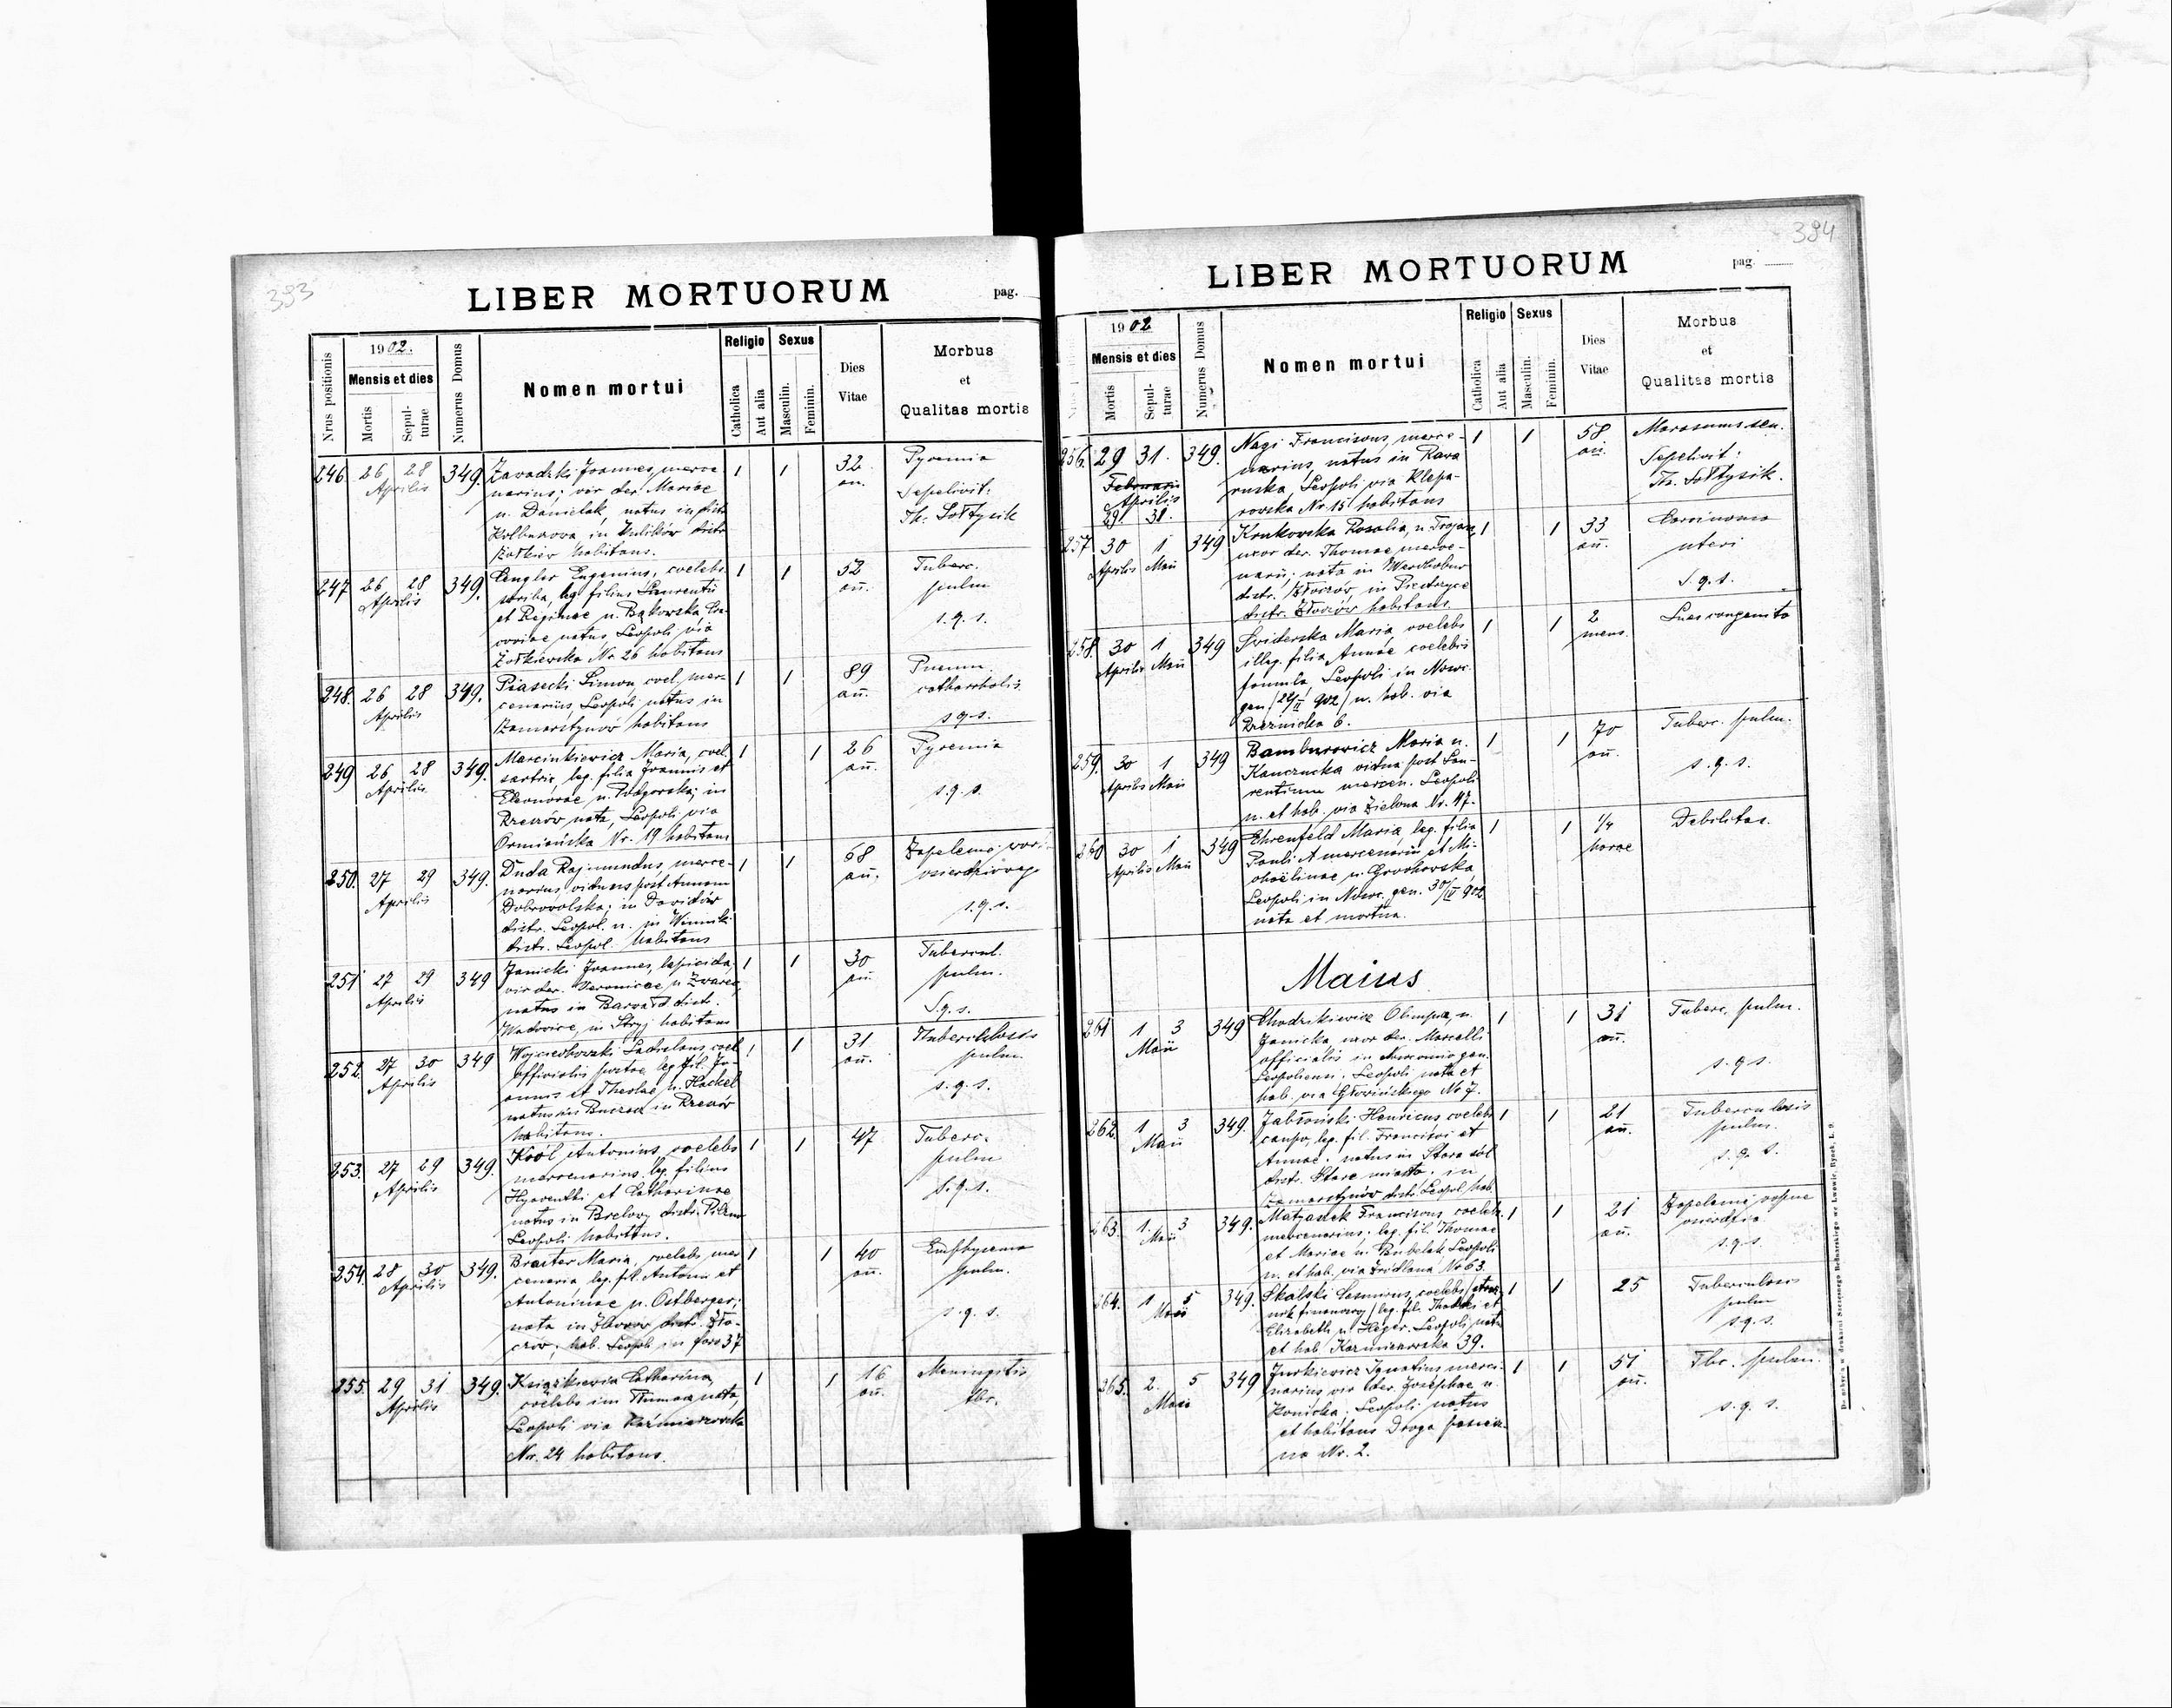 393
LIBER MORTUORUM
pag.
Nrus positionis
1902.
Mensis et dies
Mortis
Sepul-
turae
Numerus Domus
Nomen mortui
Religio
Catholica
Aut alia
Sexus
Masculin.
Feminin.
Dies
Vitae
Morbus
et
Qualitas mortis
246. 26 28 349. Zavadzki Joannes, merce 1 1 32 Pyremia
Aprilis narius; vir der. Mariae an. Sepelivit:
n. Danielak, natus in distr. Th. Sołtysik
Kolbuzova, in Kulików distr.
Żołkiew habitans.
247 26 28 349. Lengler Eugenius, coelebs 1 1 52 Tuberc.
Aprilis scriba, leg. filius Laurentii an. pulm
et Reginae n. Bąkowska Cra- s.q.s.
coviae natus, Leopoli via
Żołkiewska Nr. 26 habitans
248. 26 28 349. Piasecki Simon coel. mer- 1 1 89 Pneum.
Aprilis cenarius, Leopoli natus in an.
Zamarstynów habitans s.q.s.
249 26 28 349. Marcinkiewicz Maria, coel. 1 1 26 Pyremia
Aprilis sartrix, leg. filia Joannis et an.
Eleonorae n. Podgorska; in s.q.s.
Rzeszów nata, Leopoli via
Ormiańska Nr. 19 habitans
250. 27 29 349. Duda Rajmundus, merce- 1 1 68 Zapelenie
Aprilis narius viduus post Annam an. osierdziowego
Dobrovolska; in Davidów s.q.s.
distr. Leopol. n. in Winniki
distr. Leopol. habitans
251 27 29 349 Janicki Joannes, lapicida, 1 1 30 Tubercul.
Aprilis vir der. Veronicae n. an. pulm.
natus in Barwałd distr. S.q.s.
Wadovice, in Stryj habitans
252. 27 30 349 Wojciechowski Ladislaus coel. 1 1 31 Tuberculosis
Aprilis officialis leg. fil. Jo- an. pulm.
annis et Theclae n. Hackel s.q.s.
natus in in Rzeszów
habitans.
253. 27 29 349. Król Antonius, coelebs 1 1 47 Tuberc.
Aprilis mercenarius, leg. filius pulm
Hyacinthi et Catharinae s.q.s.
natus in distr. Pilzno
Leopoli habitans.
254. 28 30 349. Braiter Maria, coelebs, mer 1 1 40 Emphysema
Aprilis cenaria, leg. fil. Antonii et an. pulm.
Antoninae n. Ostberger; s.q.s.
nata in Zborów distr. Zło-
czów; hab. Leopoli in foro 37
255. 29 31 349. Książkiewicz Catharina, 1 1 16 Meningitis
Aprilis coelebs in Tłumacz nata, an. tbc.
Leopoli via Kaźmierzowska
Nr. 24 habitans.
394
LIBER MORTUORUM
pag.
1902
Mensis et dies
Mortis
Sepul-
turae
Numerus Domus
Nomen mortui
Religio
Catholica
Aut alia
Sexus
Masculin.
Feminin.
Dies
Vitae
Morbus
et
Qualitas mortis
256. 29 31. 349. Nagi Franciscus, merce- 1 1 58 Marasmus sen.
Februarii narius, natus in Rava an. Sepelivit:
Aprilis ruska, Leopoli via Klepa- Th. Sołtysik.
29 31. rowska Nr 15 habitans
257 30 1 349 Krukowska Rosalia, n. Trojan, 1 1 33 Carcinoma
Aprilis Maii uxor der. Thomae merce- an. uteri
narii; nata in Werchobuz S.q.s.
distr. Złoczów, in Pieczoryce
distr. Złoczów habitans.
258. 30 1 349 Sviderska Maria coelebs 1 1 2 Lues congenita
Aprilis Maii illeg. filia Annae coelebis mens.
famula Leopoli in Nosoc.
gen. n. hab. via
Brzeznicka 6.
259. 30 1 349 Bamburowicz Maria n. 1 1 70 Tuberc. pulm.
Aprilis Maii Kanczucka vidua post Lau- an. s.q.s.
rentium mercen. Leopoli
n. et hab. via Zielona Nr. 47.
260 30 1 349 Ehrenfeld Maria, leg. filia 1 1 1/4 Debilitas.
Aprilis Maii Pauli mercenarii et Mi- horae
chaëlinae n. Grochowska,
Leopoli in Nosoc. gen. 30/IV 902
nata et mortua.
Maius
261 1 3 349 Chodzkiewicz Olimpia, n. 1 1 31 Tuberc. pulm.
Maii Janicka, uxor der. Marcelli an. s.q.s.
officialis in Nosocomio gen.
Leopoliensi. Leopoli nata et
hab. via Głowińskiego Nr 7.
262. 1 3 349. Jabłoński Henricus coelebs 1 1 21 Tuberculosis
Maii caupo, leg. fil. Francisci et an. pulm.
Annae, natus in Stara sól s.q.s.
distr. Stare miasto, in
Zamarstynów distr. Leopol. hab.
263. 1. 3 349. Matzanek Franciscus coelebs 1 1 21 Zapelenie
Maii mercenarius; leg. fil. Thomae an. osierdzia
et Mariae n. Bubelak Leopoli s.q.s.
n. et hab. via Źródlana Nr 63.
264. 1 5 349. Skalski Casimirus, coelebs (straż- 1 1 25 Tuberculosis
Maii nik finansowy) leg. fil. Thaddei et pulm
Elisabeth n. Heger. Leopoli natus s.q.s.
et hab. Kazmierzowska 39.
265. 2. 5 349 Jurkiewicz Ignatius merce- 1 1 51 Tbc. pulm.
Maii narius vir der. Josephae n. an. s.q.s.
Konicka. Leopoli natus
et habitans Droga
na Nr. 2.